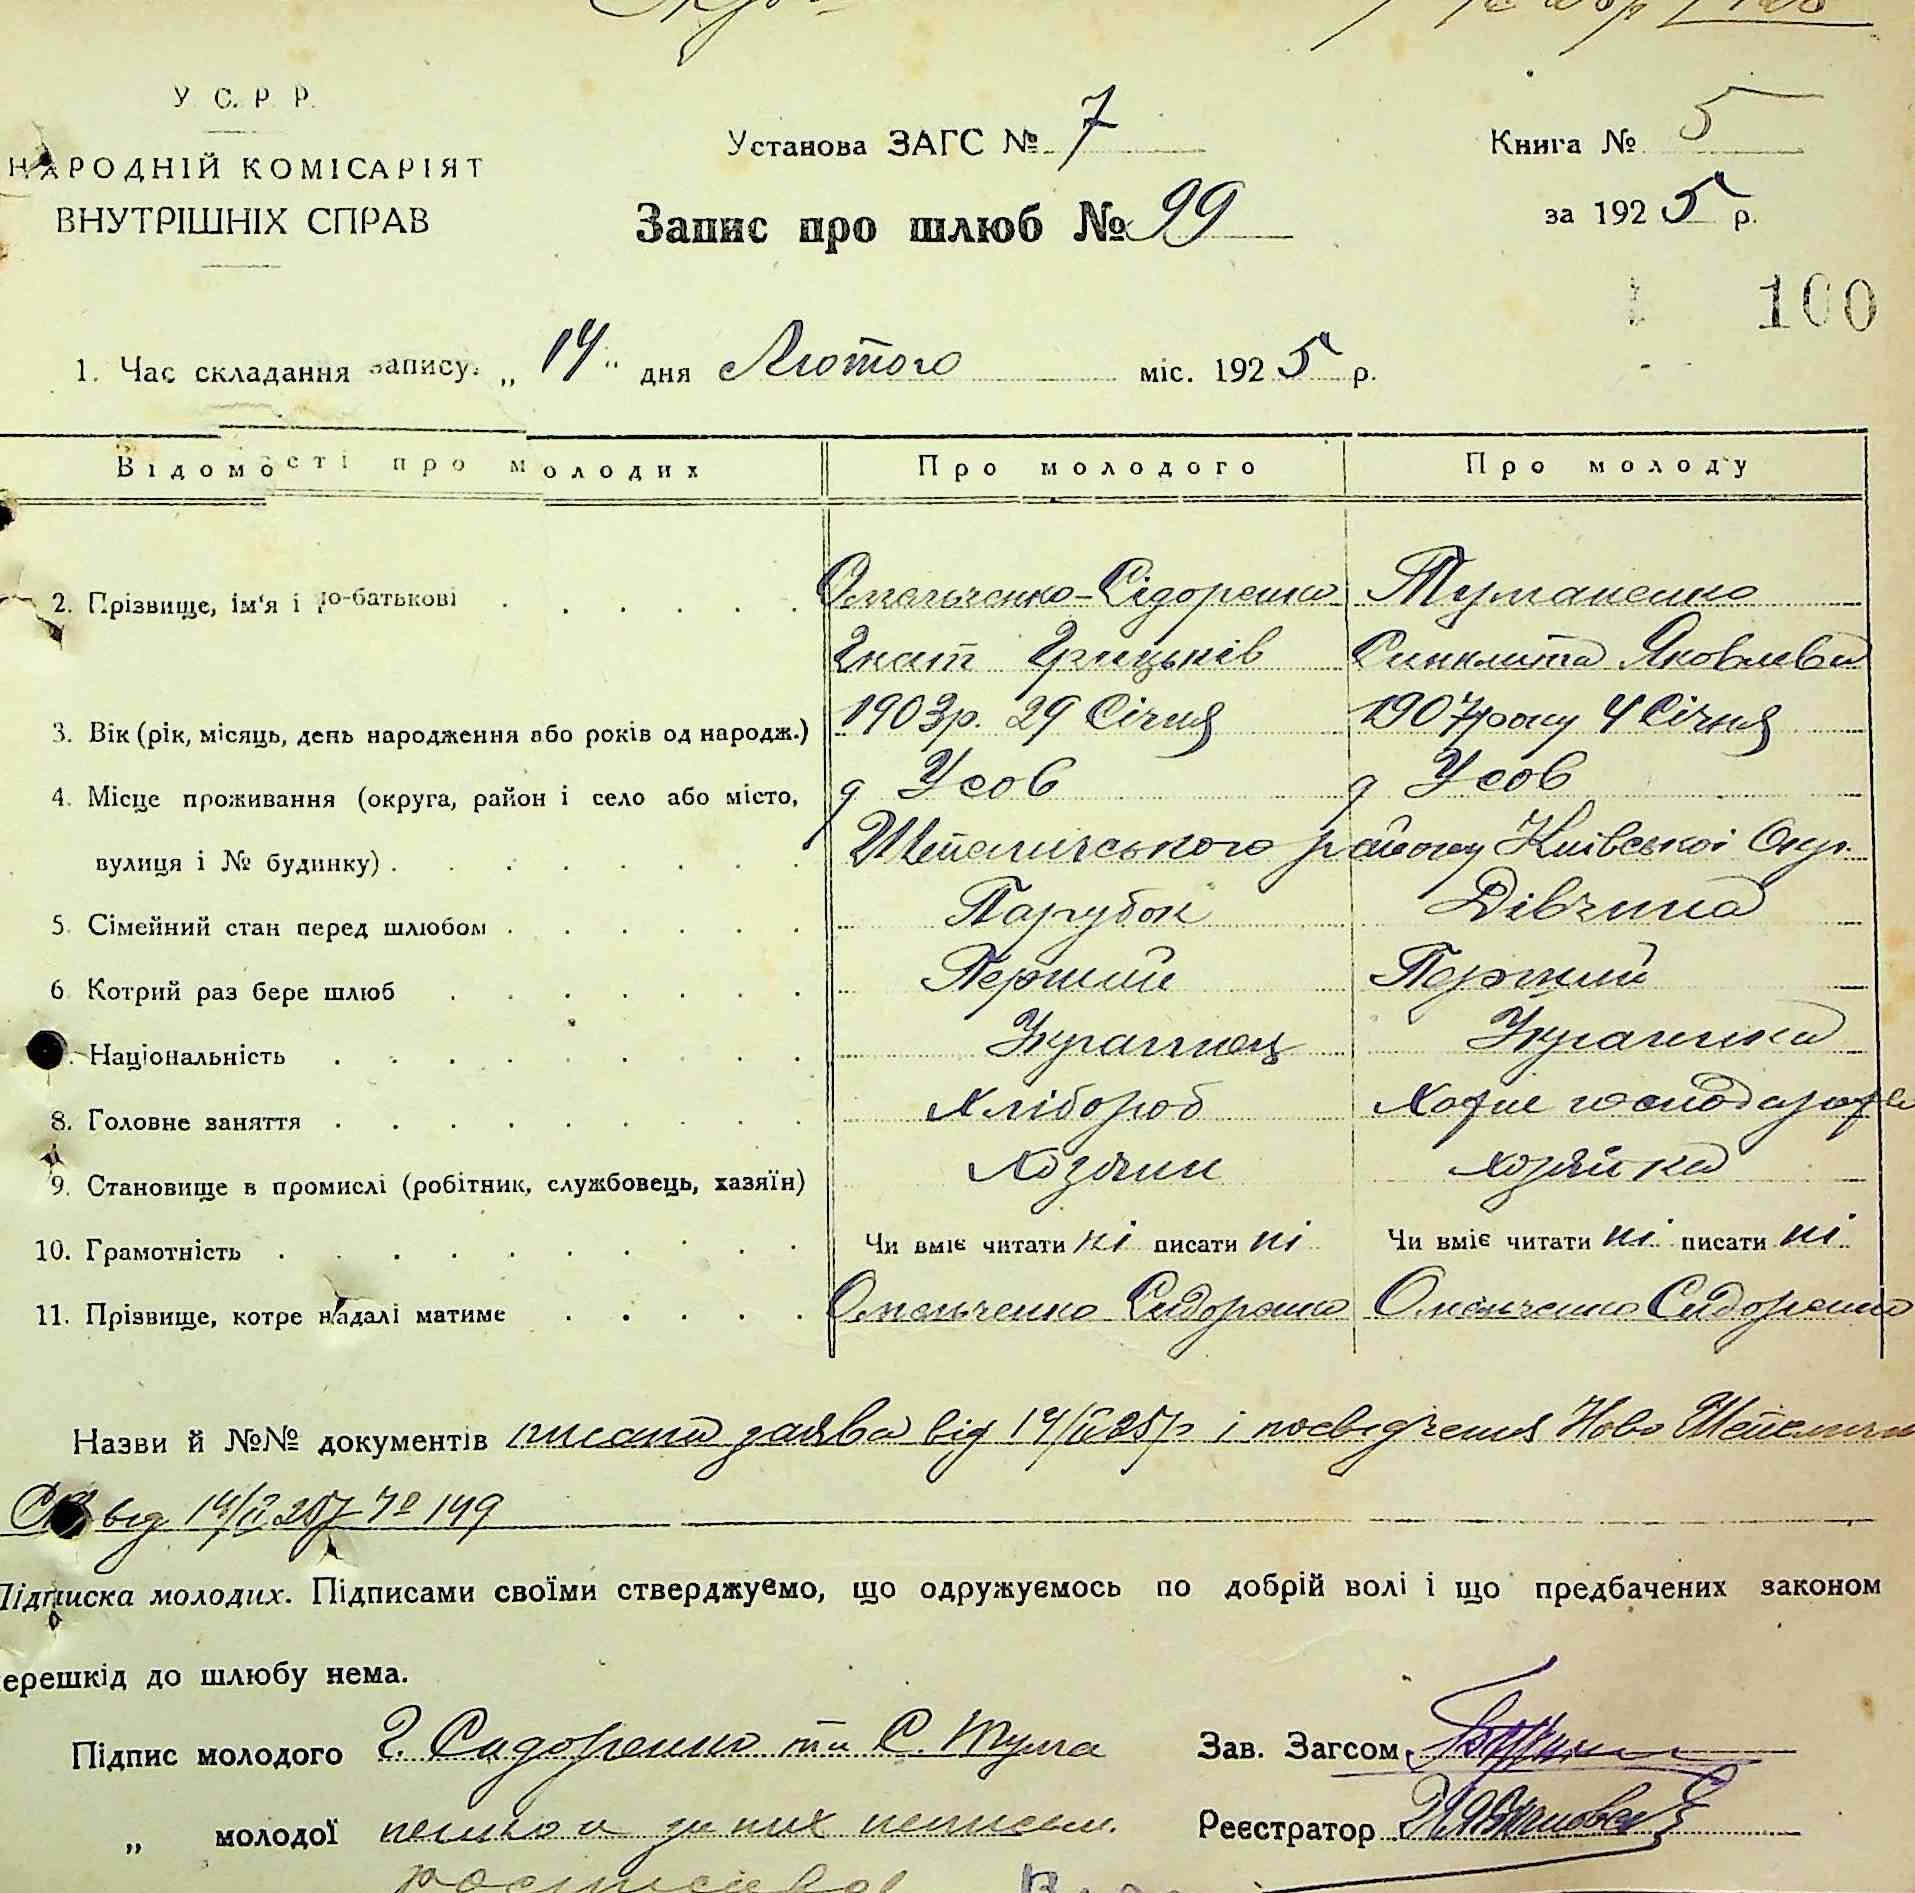 У. С. Р. Р.
НАРОДНІЙ КОМІСАРІЯТ
ВНУТРІШНІХ СПРАВ
Установа ЗАГС № 7
Запис про шлюб № 99
Книга № 5
за 1925 р.
100
1. Час складання запису: „14" дня Лютого міс. 1925 р.
Відомості про молодих Про молодого Про молоду
2. Прізвище, ім'я і по-батькові Омельченко-Сідоренко Туманенко
Гнат Грицьків Синклита Яковлева
3. Вік (рік, місяць, день народження або років од народж.) 1903 р. 29 Січня 1907 року 4 Січня
4. Місце проживання (округа, район і село або місто, д Усов д Усов
вулиця і № будинку) Шепеличського району Київської Окр.
5. Сімейний стан перед шлюбом Парубок Дівчина
6. Котрий раз бере шлюб Перший Перший
Національність Украинец Украинка
8. Головне заняття Хлібороб Хатне господарство
9. Становище в промислі (робітник, службовець, хазяїн) Хозяин хозяйка
10. Грамотність Чи вміє читати ні писати ні Чи вміє читати ні писати ні
11. Прізвище, котре надалі матиме Омельченко Сидоренко Омельченко Сидоренко
Назви й №№ документів писана заява від 14/II 25 р і посвідчення Ново Шепелич
від 14/II 25 р № 149
Підписка молодих. Підписами своїми стверджуємо, що одружуємось по добрій волі і що предбачених законом
перешкід до шлюбу нема.
Підпис молодого Г. Сидоренко та С. Тума
Зав. Загсом
„ молодої ненко а за них неписьм.
Реєстратор